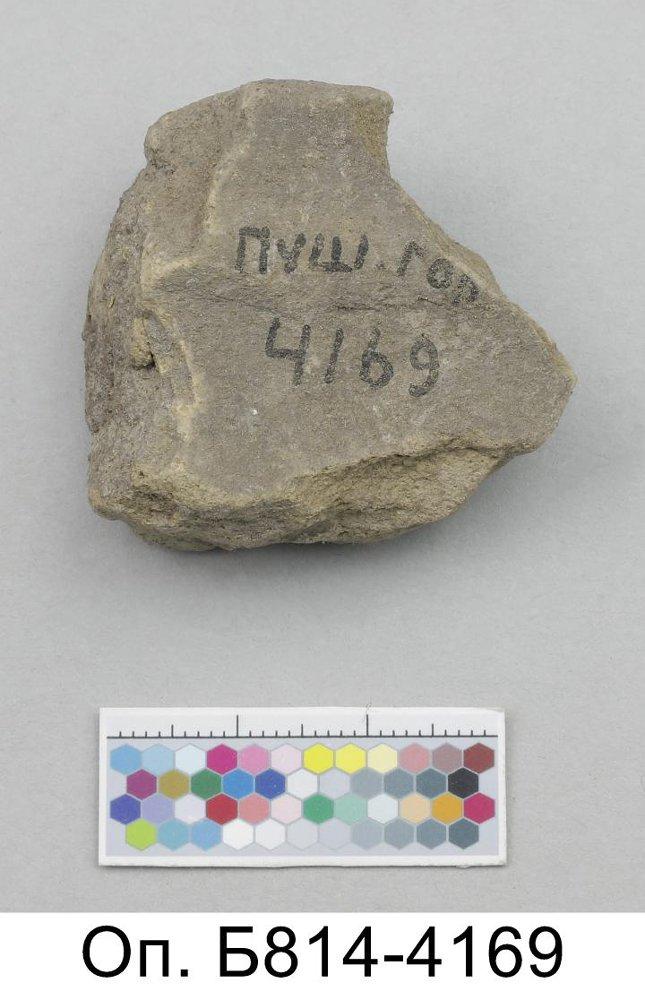 ПУШ. ГОР
4169
Оп. Б814-4169